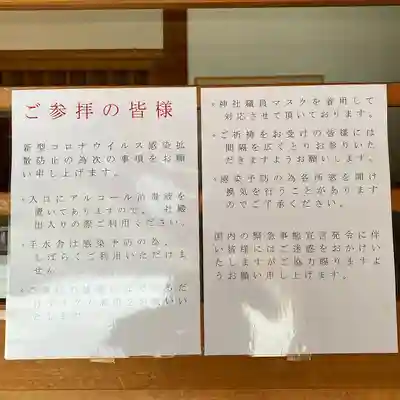 ご参拝の皆様
新型コロナウイルス感染拡
散防止の為次の事項をお願
い申し上げます。
・入口にアルコール消毒液を
置いてありますので、 社殿
出入りの際ご利用ください。
・手水舎は感染予防の為、
しばらくご利用いただけま
せん
・神社職員マスクを着用して
対応させて頂いております。
・ご祈祷をお受けの皆様には
間隔を広くとりお参りいた
だきますようお願いします。
・感染予防の為各所窓を開け
換気を行うことがあります
のでご了承ください。
国内の緊急事態宣言発令に伴
い皆様にはご迷惑をおかけい
たしますがご協力賜りますよ
うお願い申し上げます。